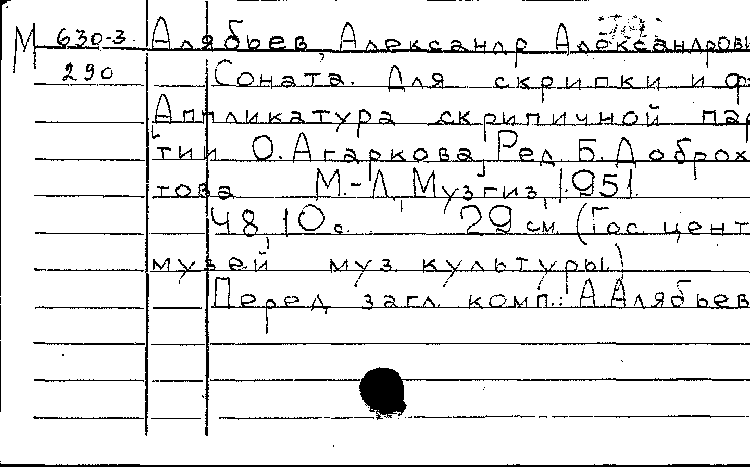 М 630-3 Алябьев, Александр Александрови
290 Соната. Для скрипки и ф
Аппликатура скрипичной пар
тии О. Агаркова, Ред. Б. Доброх
това М.-Л., Музгиз, 1951.
48, 10 с. 29 см. (Гос. цент
музей муз. культуры.)
Перед загл. комп.: А. Алябьев